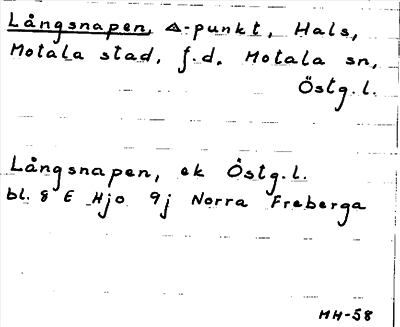 Långsnapen, △-punkt, Hals,
Motala stad, f.d. Motala sn,
Östg.l.
Långsnapen, ek Östg.l.
bl. 8 E Hjo 9j Norra Freberga
MH-58